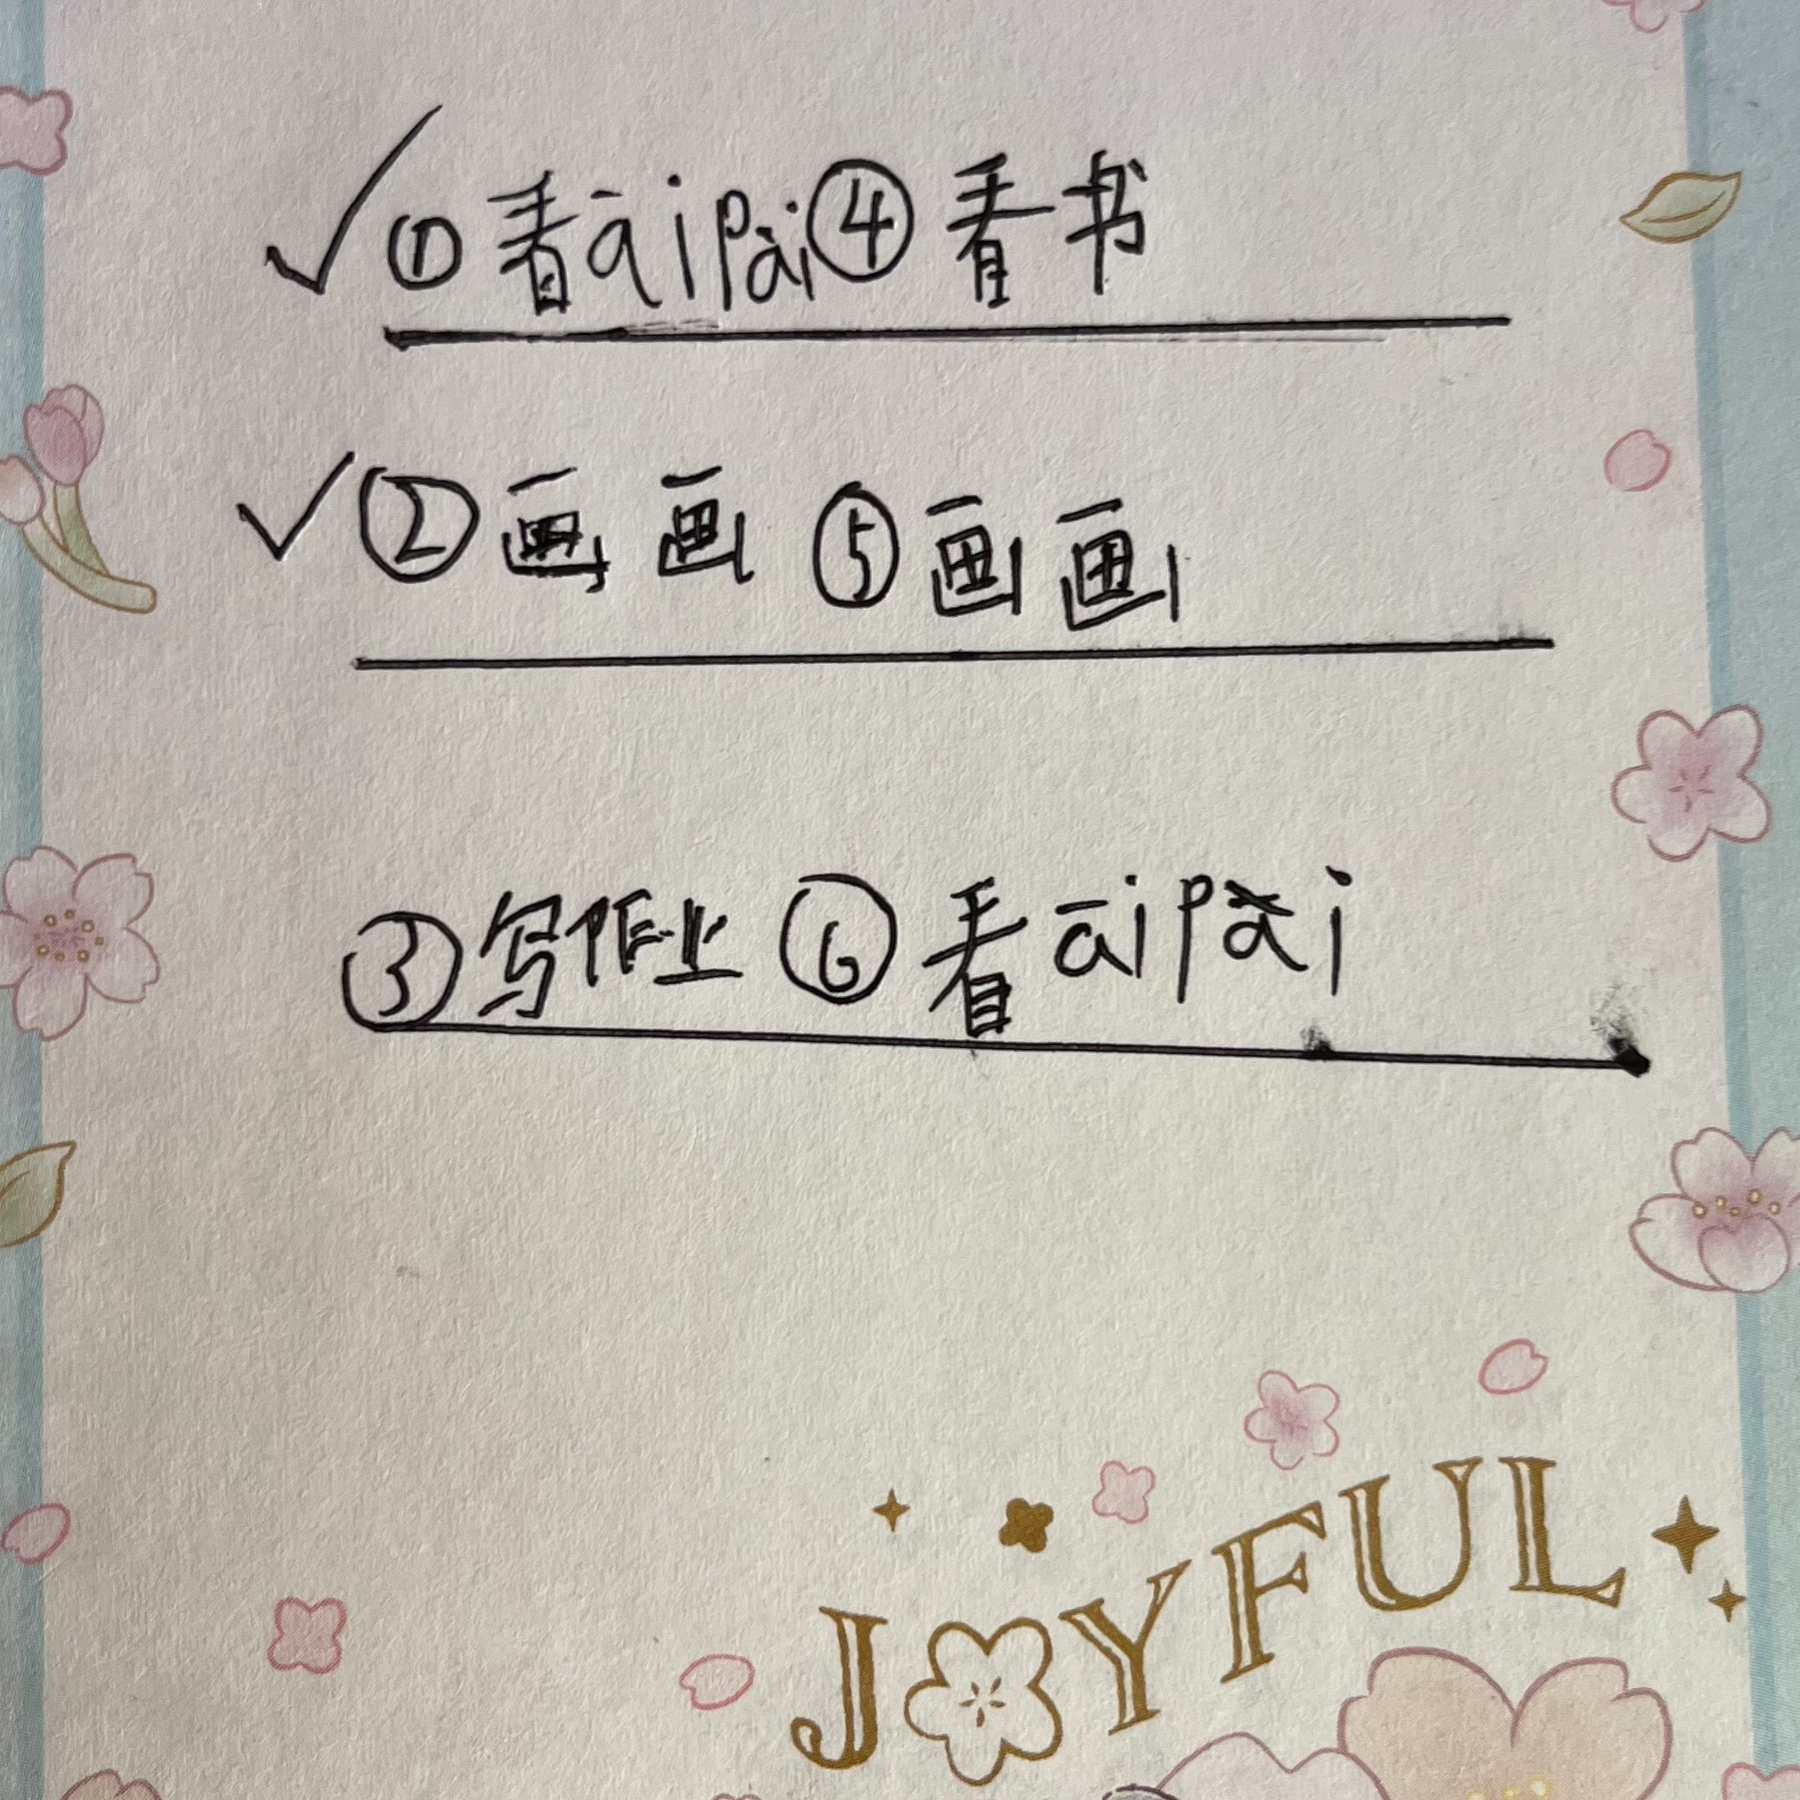 ✓①看āipài④看书
✓②画画 ⑤画画
③写作业 ⑥看āipài
JOYFUL